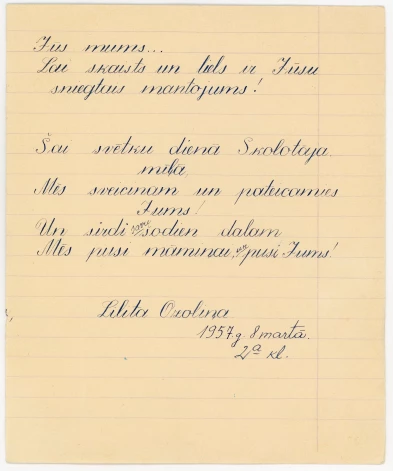 Jūs mums...
Lai skaists un liels ir Jūsu
sniegtais mantojums!
Šai svētku dienā Skolotāja
mīļā,
Mēs sveicinam un pateicamies
Jums!
Un sirdi savu šodien dalam
Mēs pusi māmiņai, un pusi Jums!
Lilita Ozoliņa
1957.g. 8 martā.
2a kl.